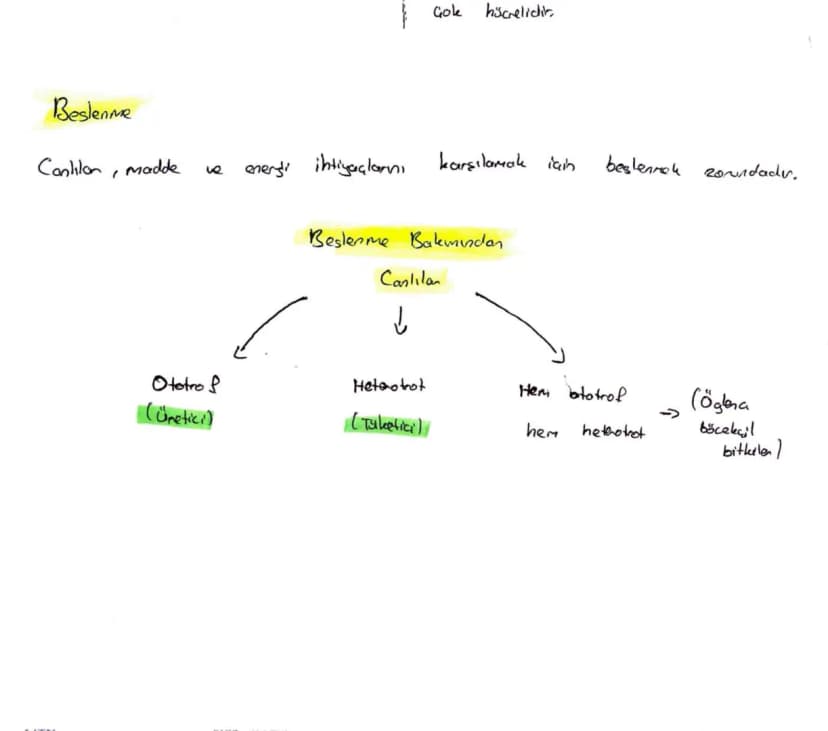 Çok hücrelidir.
Beslenme
Canlılar, madde ve enerji ihtiyaçlarını karşılamak için beslenmek zorundadır.
Beslenme Bakımından
Canlılar
Ototrof
(Üretici)
Heterotrof
(Tüketici)
Hem ototrof
hem heterotrof
→ (Öglena
böcekçil
bitkiler)